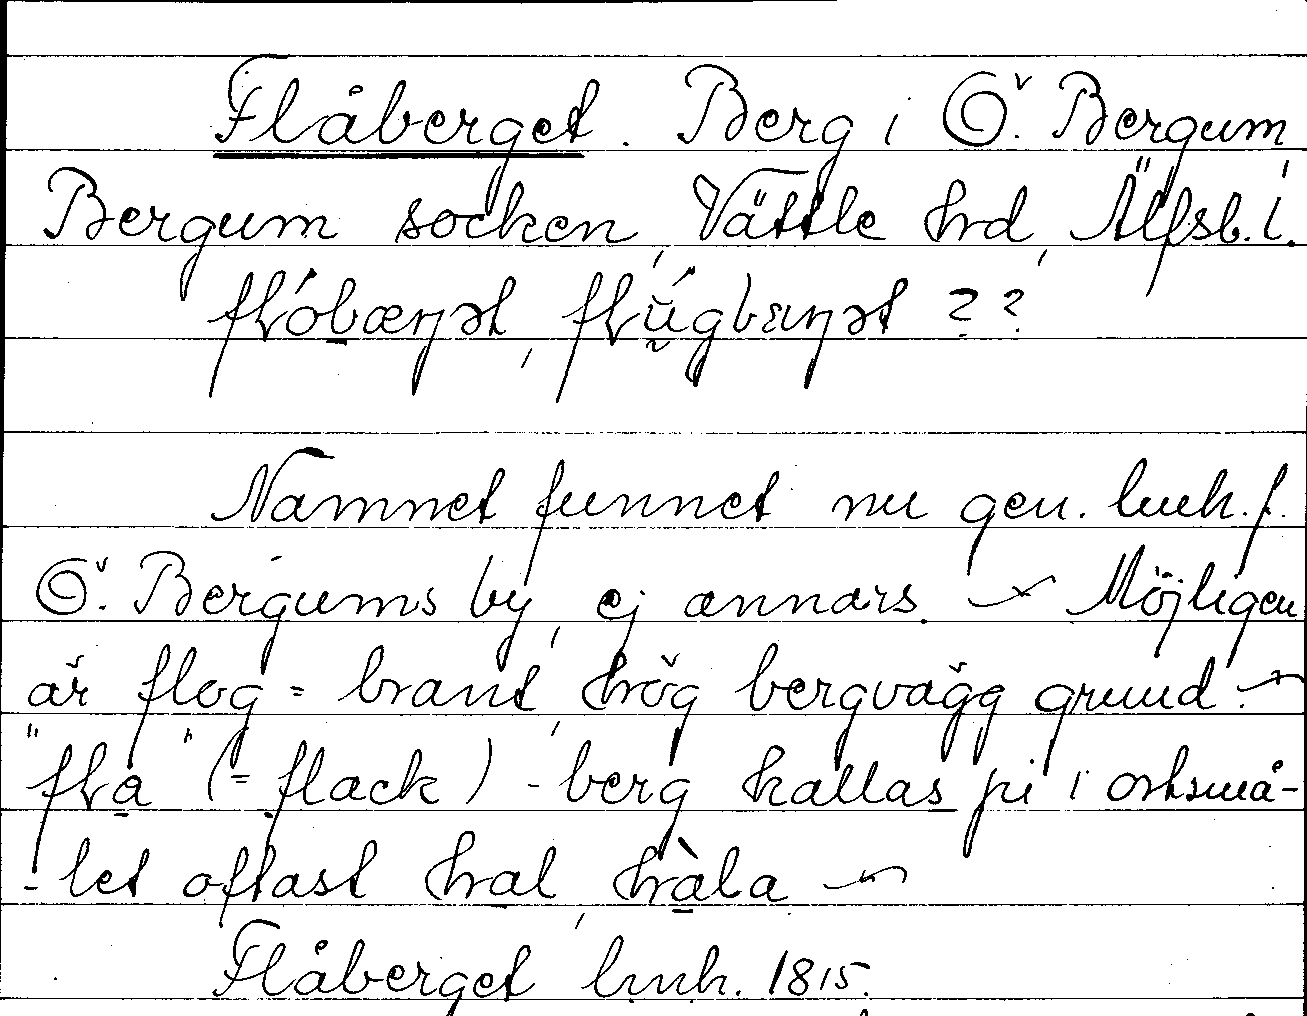 Flåberget. Berg i Ö. Bergum,
Bergum socken, Vättle hrd, Älfsb. l.
flóbæŋət, flúgbæŋət ??
Namnet funnet nu gen. lmh. f.
Ö. Bergums by, ej annars. ~ Möjligen
är flog = brant, hög bergvägg grund ~
"fla" (= flack) - berg kallas på i ortsmå-
-let oftast hal, hàla ~
Flåberget lmh. 1815.